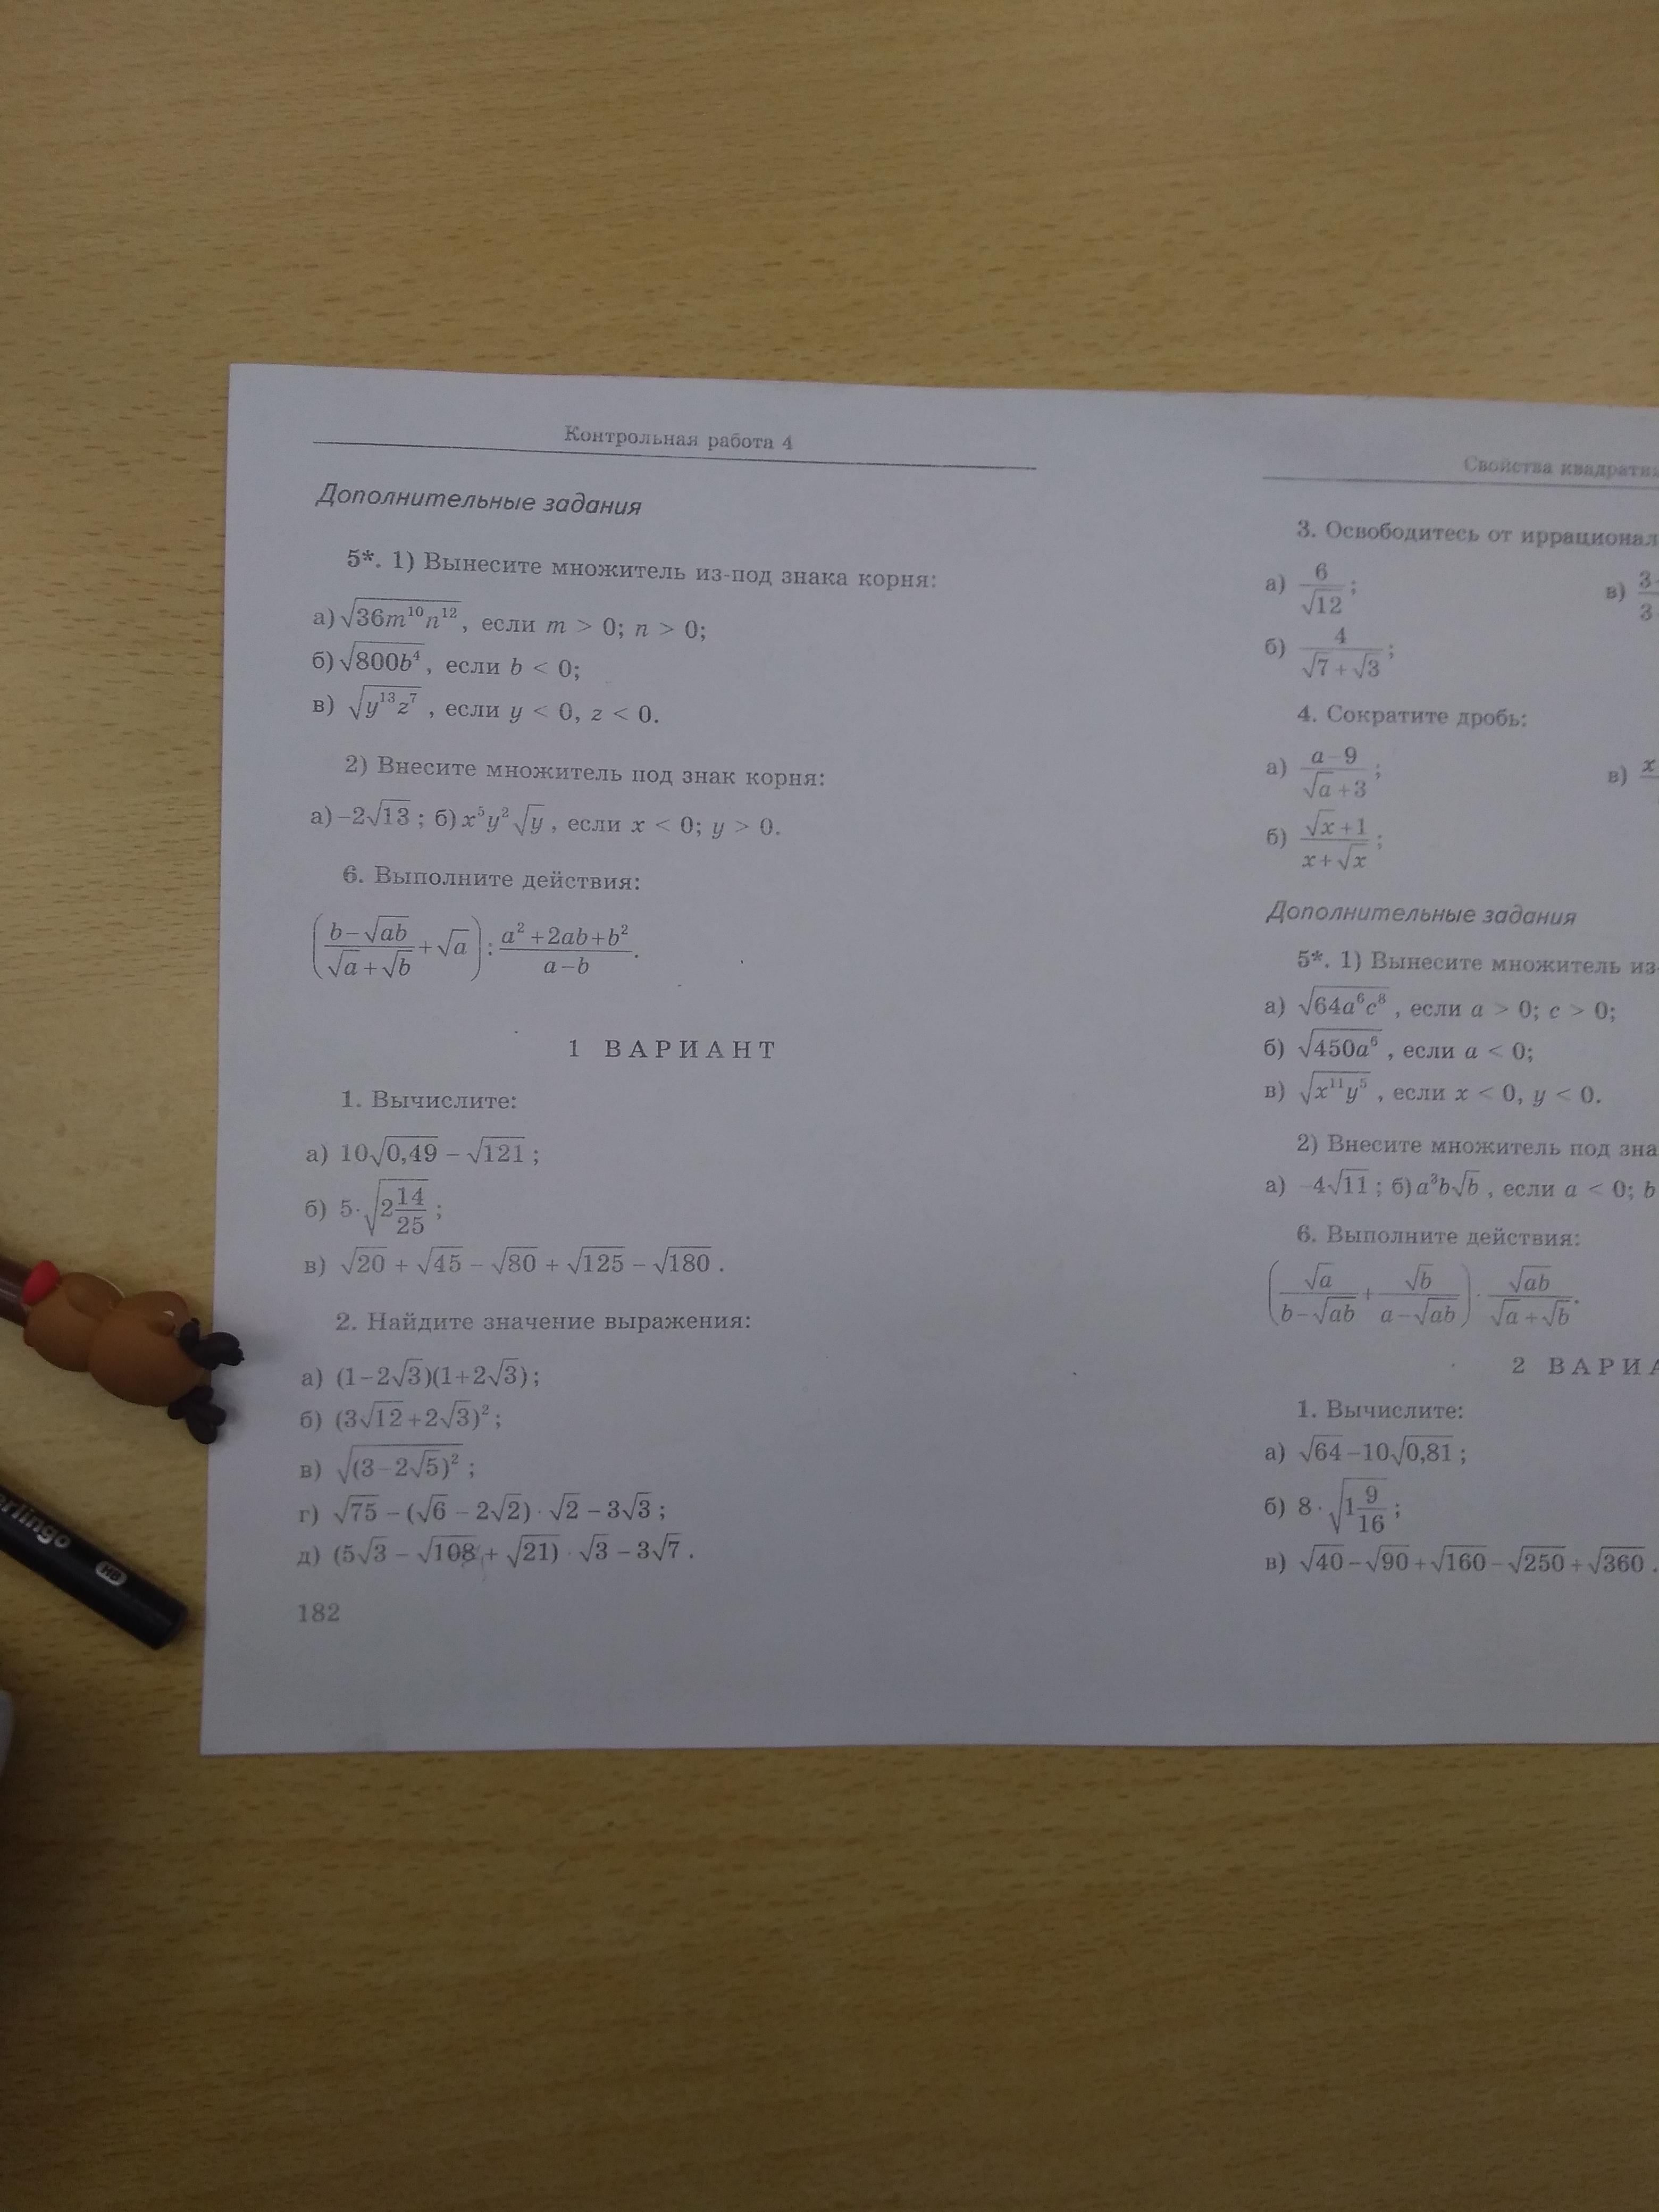 Контрольная работа 4
Дополнительные задания
5*. 1) Вынесите множитель из-под знака корня:
а) √(36m¹⁰n¹²), если m > 0; n > 0;
б) √(800b⁴), если b < 0;
в) √(y¹³z⁷), если y < 0, z < 0.
2) Внесите множитель под знак корня:
а) −2√13; б) x⁵y²√y, если x < 0; y > 0.
6. Выполните действия:
((b−√(ab))/(√a+√b) + √a) : (a²+2ab+b²)/(a−b).
1 ВАРИАНТ
1. Вычислите:
а) 10√(0,49) − √121;
б) 5·√(2 14/25);
в) √20 + √45 − √80 + √125 − √180.
2. Найдите значение выражения:
а) (1−2√3)(1+2√3);
б) (3√12+2√3)²;
в) √((3−2√5)²);
г) √75 − (√6 − 2√2) · √2 − 3√3;
д) (5√3 − √108 + √21) · √3 − 3√7.
182
Свойства
3. Освободитесь от
а) 6/√12;
в)
б) 4/(√7+√3);
4. Сократите дробь:
а) (a−9)/(√a+3);
в)
б) (√x+1)/(x+√x);
Дополнительные задания
5*. 1) Вынесите множитель из-
а) √(64a⁶c⁸), если a > 0; c > 0;
б) √(450a⁶), если a < 0;
в) √(x¹¹y⁵), если x < 0, y < 0.
2) Внесите множитель под
а) −4√11; б) a³b√b, если a < 0; b
6. Выполните действия:
(√a/(b−√(ab)) + √b/(a−√(ab))) · √(ab)/(√a+√b).
2 ВАРИА
1. Вычислите:
а) √64 − 10√(0,81);
б) 8·√(1 9/16);
в) √40 − √90 + √160 − √250 + √360.
erlingo
HB